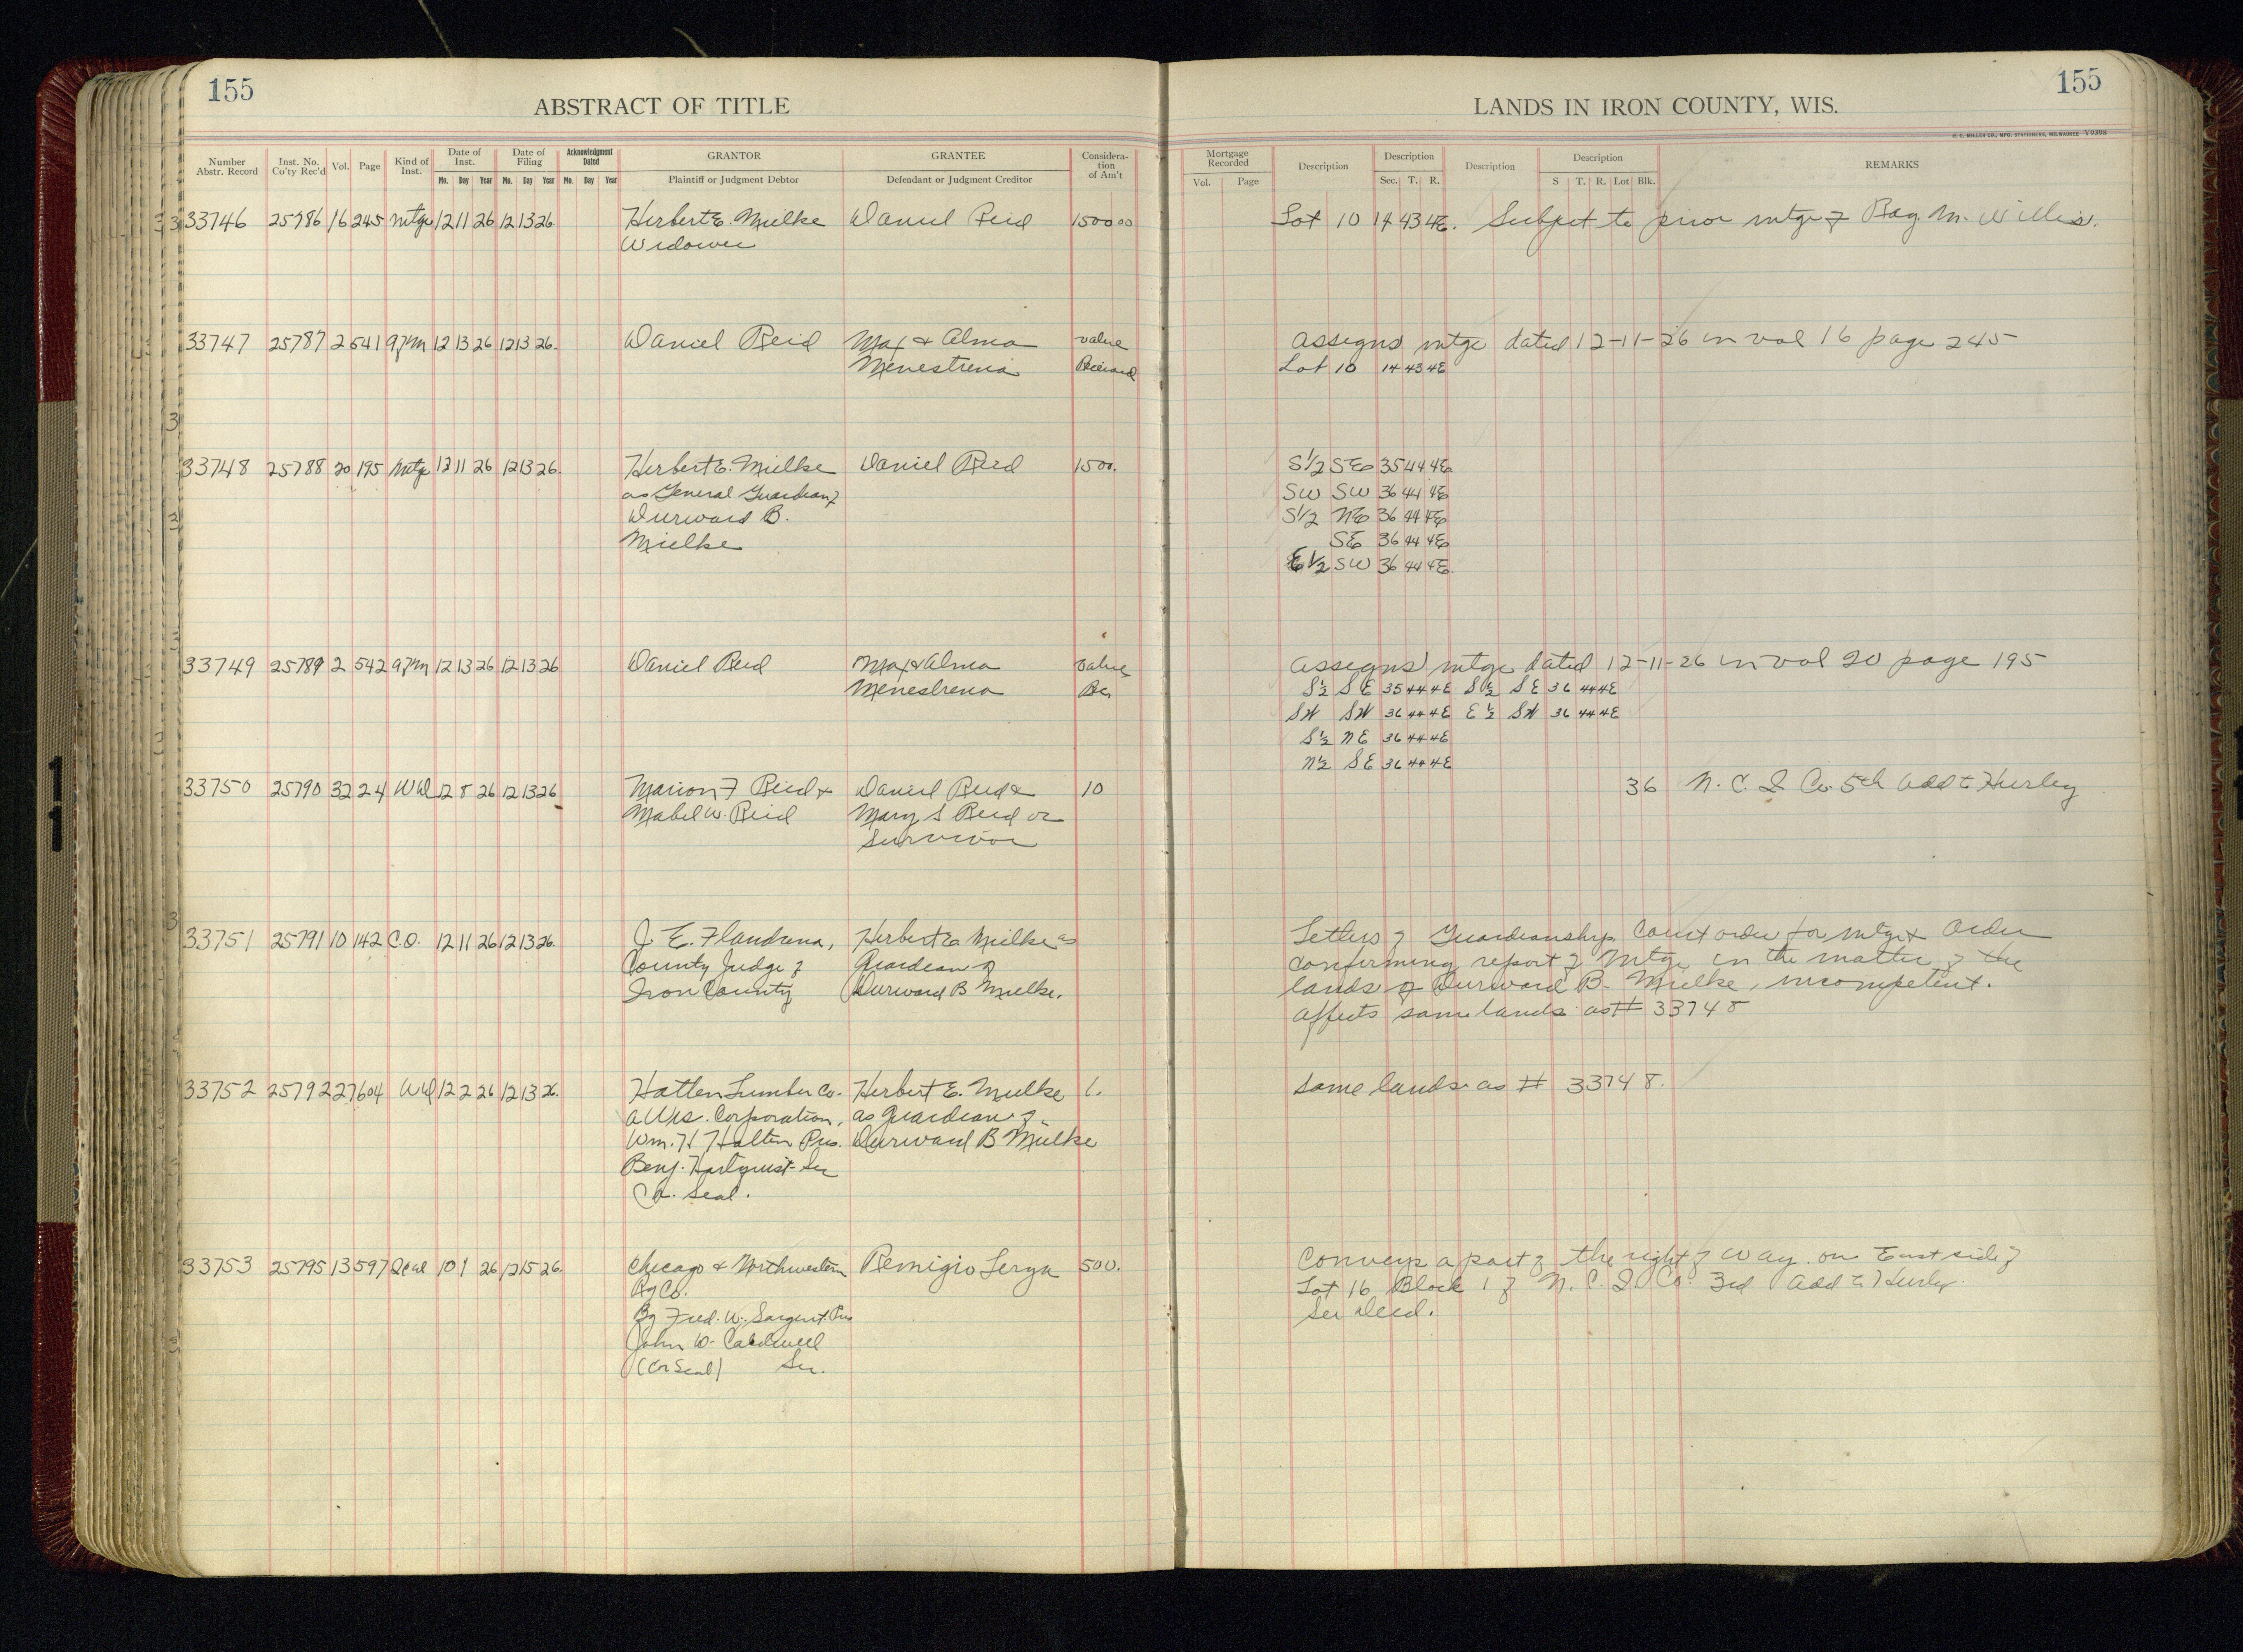 155
ABSTRACT OF TITLE
LANDS IN IRON COUNTY, WIS.
155
H. C. MILLER CO., MFG. STATIONERS, MILWAUKEE Y9398
Number Abstr. Record | Inst. No. Co'ty Rec'd | Vol. | Page | Kind of Inst. | Date of Inst. Mo. Day Year | Date of Filing Mo. Day Year | Acknowledgment Dated Mo. Day Year | GRANTOR Plaintiff or Judgment Debtor | GRANTEE Defendant or Judgment Creditor | Consideration of Am't | Mortgage Recorded Vol. Page | Description | Description Sec. T. R. | Description | Description S T. R. Lot Blk. | REMARKS
33746 25786 16 245 mtge 12 11 26 12 13 26 Herbert E. Mielke Daniel Reid 1500 00 Lot 10 14 43 4E. Subject to prior mtge of M. Willis.
Widower
33747 25787 2 541 12 13 26 12 13 26. Daniel Reid Max & Alma value assigns mtge dated 12-11-26 in vol 16 page 245
Menestrena Received Lot 10 14 43 4E
33748 25788 20 195 mtge 12 11 26 12 13 26. Herbert E. Mielke Daniel Reid 1500. S1/2 SE 35 44 4E
as General Guardian of SW SW 36 44 4E
Durward B. S1/2 NE 36 44 4E
Mielke SE 36 44 4E
E1/2 SW 36 44 4E.
33749 25789 2 542 12 13 26 12 13 26 Daniel Reid Max & Alma value assigns mtge dated 12-11-26 in vol 20 page 195
Menestrena Rec S½ SE 35 44 4E S½ SE 36 44 4E
SW SW 36 44 4E E½ SW 36 44 4E
S½ NE 36 44 4E
N½ SE 36 44 4E
33750 25790 32 24 WD 12 8 26 12 13 26 Marion F Reid & Daniel Reid & 10 36 N. C. I. Co. 5th Add to Hurley
Mabel W. Reid Mary S Reid or
Survivor
33751 25791 10 142 C.O. 12 11 26 12 13 26. J. E. Flandrena, Herbert E. Mielke as Letters of Guardianship, Court order for mtge & Order
County Judge of Guardian of confirming report of Mtge in the matter of the
Iron County Durward B Mielke. lands of Durward B. Mielke, incompetent.
affects same lands as # 33748
33752 25792 27 604 WD 12 2 26 12 13 26. Hatten Lumber Co. Herbert E. Mielke 1. Same lands as # 33748.
a Wis. Corporation, as guardian of
Wm. H Hatten Pres. Durward B Mielke
Benj. Hartquist Sec
Co. Seal.
33753 25795 13 597 Deed 10 1 26 12 15 26. Chicago & Northwestern Remigio 500. Conveys a part of the right of way on East side of
Ry Co. Lot 16 Block 1 of N. C. I. Co. 3rd Add to Hurley.
By Fred. W. Sargent Pres See Deed.
John W. Caldwell
(Cor Seal) Sec.